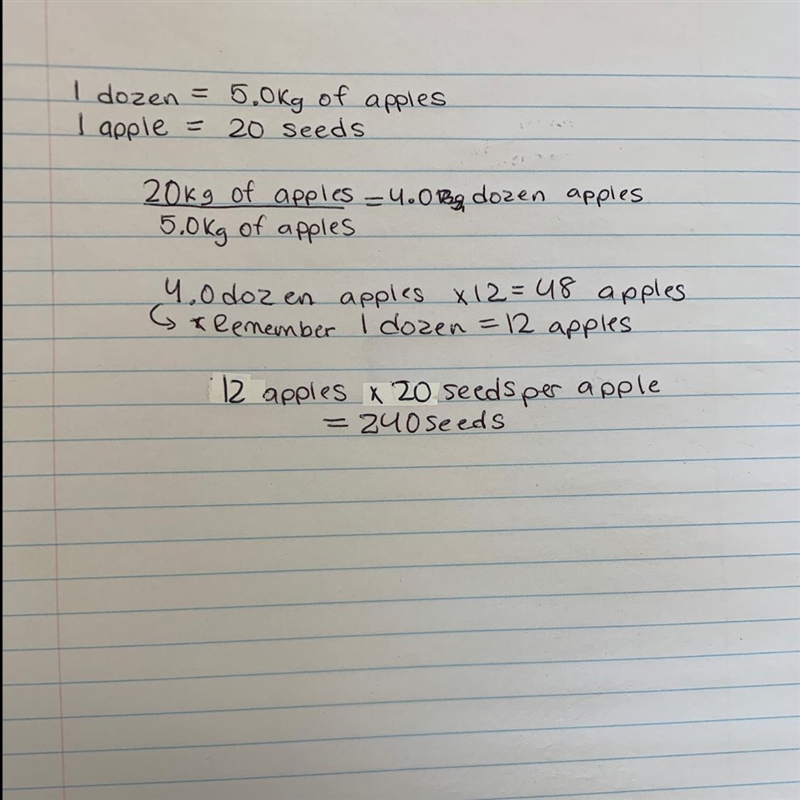 1 dozen = 5.0Kg of apples
1 apple = 20 seeds
20kg of apples = 4.0 dozen apples
5.0Kg of apples
4.0 dozen apples x12 = 48 apples
↳ *Remember 1 dozen = 12 apples
12 apples x 20 seeds per apple
= 240 seeds